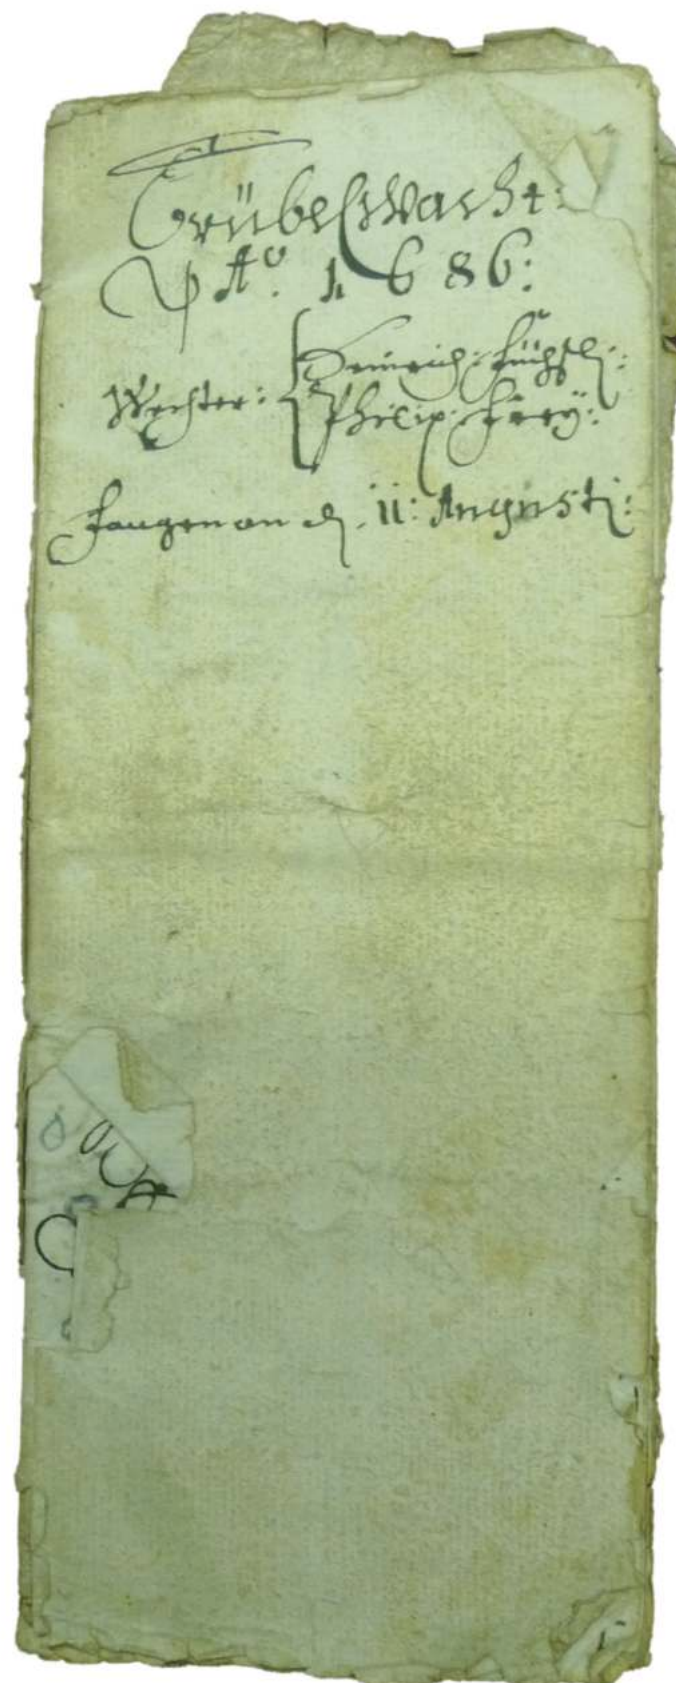 Trübelwacht:
p Aº. 1686:
Wechter: Heinrich: Füchsli:
Philip: Frey:
Fangen an d. 11: Augusti: